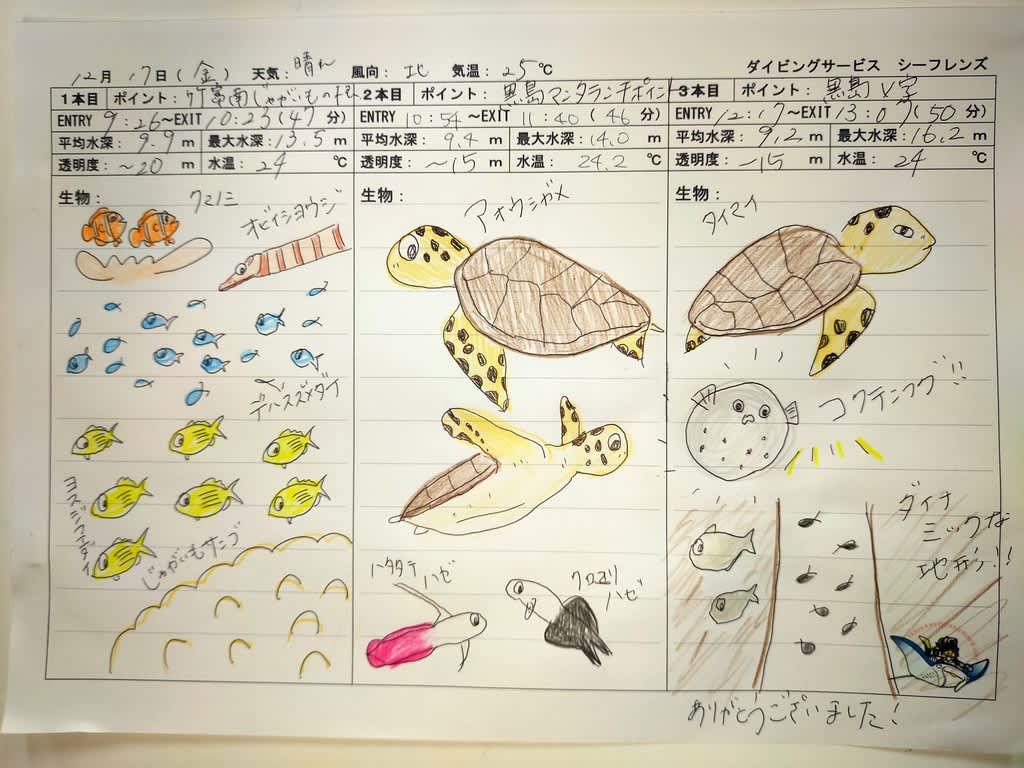 12月 17日(金) 天気:晴れ 風向:北 気温:25℃ ダイビングサービス シーフレンズ
1本目 ポイント:竹富南じゃがいも
ENTRY 9:26~EXIT 10:23(47分)
平均水深:9.9m 最大水深:13.5m
透明度:~20m 水温:24℃
生物:
クマノミ
オビイシヨウジ
デバスズメダイ
ヨスジフエダイ
じゃがいもサンゴ
2本目 ポイント:黒島マンタランチポイント
ENTRY 10:54~EXIT 11:40(46分)
平均水深:9.4m 最大水深:14.0m
透明度:~15m 水温:24.2℃
生物:
アオウミガメ
ハタタテ
ハゼ
クロユリ
ハゼ
3本目 ポイント:黒島V字
ENTRY 12:17~EXIT 13:07(50分)
平均水深:9.2m 最大水深:16.2m
透明度:~15m 水温:24℃
生物:
タイマイ
コクテンフグ!!
ダイナ
ミックな
地形!!
ありがとうございました!